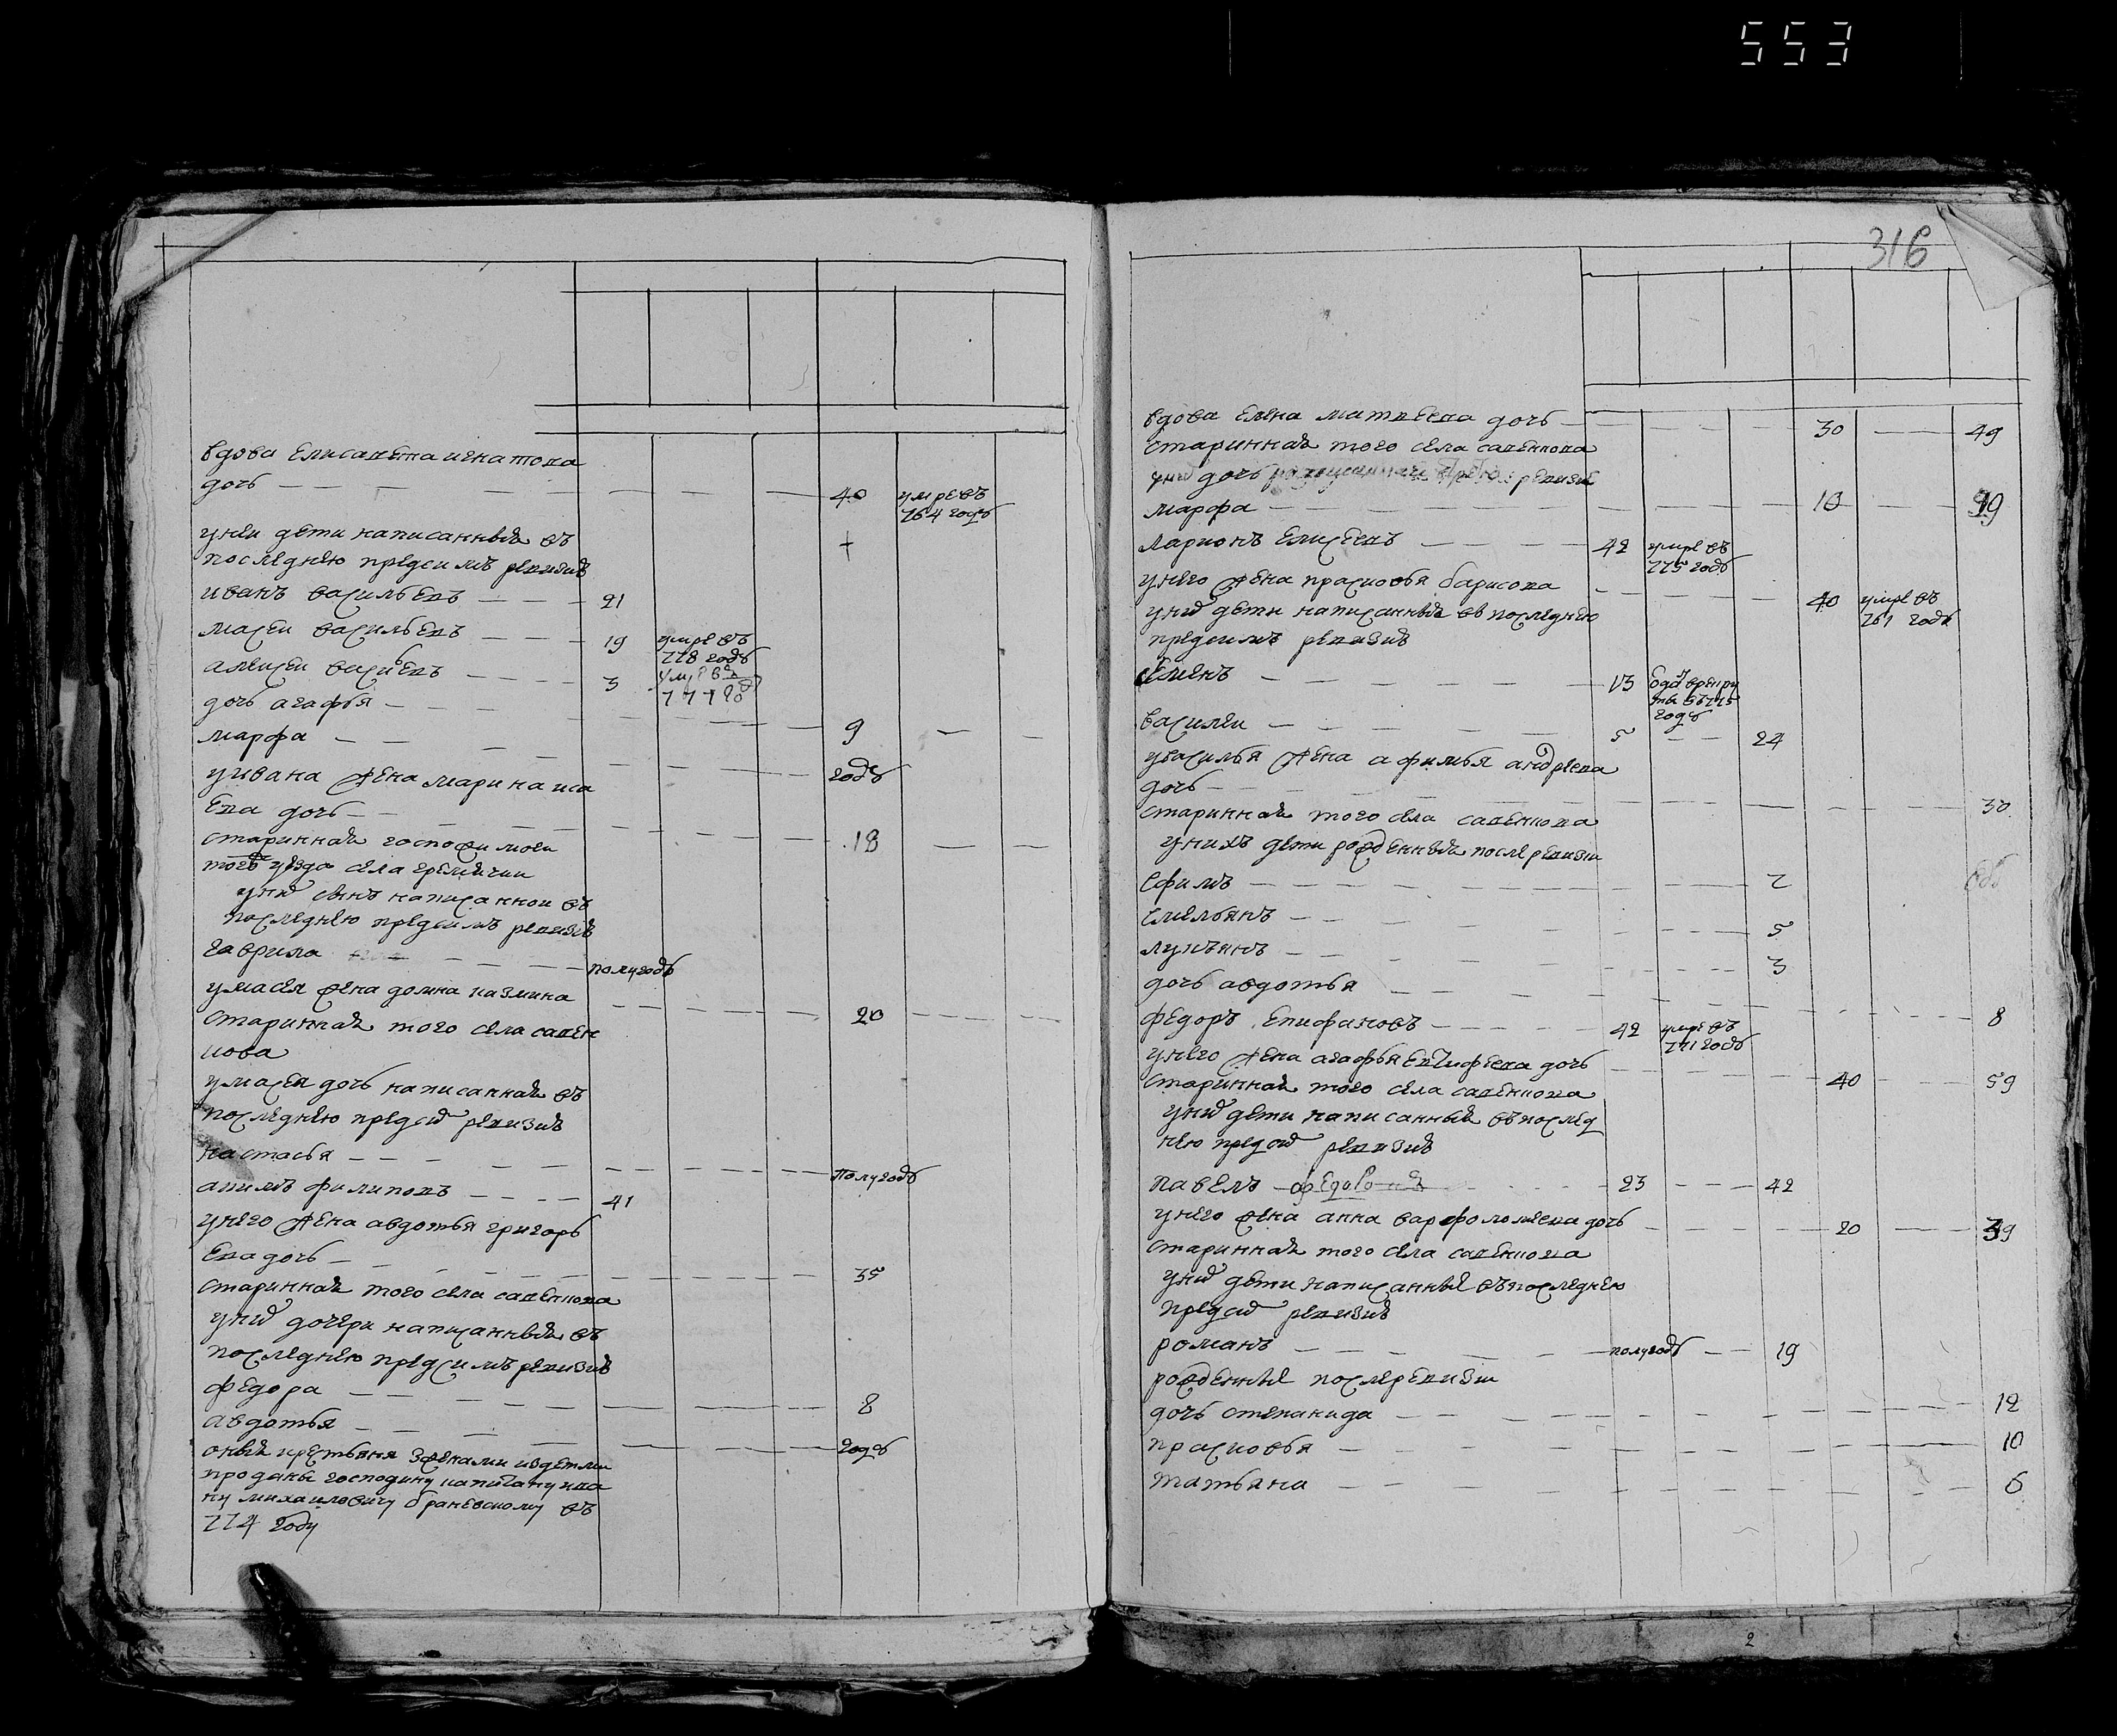 553
316
вдова Елисавета игнатова
дочь 40 умре въ
764 годъ
унеи дети написанныя въ
последнею предсимъ ревизиѣ
иванъ васильевъ 21
масеи васильевъ 19 умре въ
778 годъ
алексеи василевъ 3 умре въ
дочь агафья 9
марфа годъ
уивана жена марина иса
Ева дочь 18
старинная
того уезда села
унеи сынъ написаннои въ
последнею предсимъ ревизиѣ
гаврила полугодъ
умасея жена домна казмина 20
старинная того села савен
кова
умасея дочь написанная въ
последнею предсей ревизиѣ
настасья полугодъ
акимъ филиповъ 41
унего жена авдотья григорь
Ева дочь 35
старинная того села савенкова
унеи дочери написанныя въ
последнею предсимъ ревизиѣ
федора 8
авдотья годъ
оныя крестьяня зженами издетми
проданы господину капитану ива
ну михаиловичу браневскому въ
774 году
вдова Елена матвеева дочь 30 49
старинная того села савенкова
унеи дочь ревизи
марфа 10
ларионъ Елисеевъ 42 умре въ
775 годъ
унего жена прасковья барисова 40 умре въ
761 годъ
унеи дети написанныя въ последнею
предсимъ ревизиѣ
семенъ 13
въ 775
годъ
василеи 5 24
увасилья жена афимья андреева
дочь 30
старинная того села савенкова
унихъ дети рожденныя после ревизи
Ефимъ 7
Емельянъ 5
лукьянъ 3
дочь авдотья 8
федоръ Епифановъ 42 умре въ
771 годъ
унего жена агафья дочь 40 59
старинная того села савенкова
унеи дети написанныя въ послед
нею предсей ревизиѣ
павелъ 23 42
унего жена анна варфоломеева дочь 20 39
старинная того села савенкова
унеи дети написанные въпоследнею
предсей ревизиѣ
романъ полугодъ 19
рожденные после ревизи
дочь степанида 12
прасковья 10
татьяна 6
2